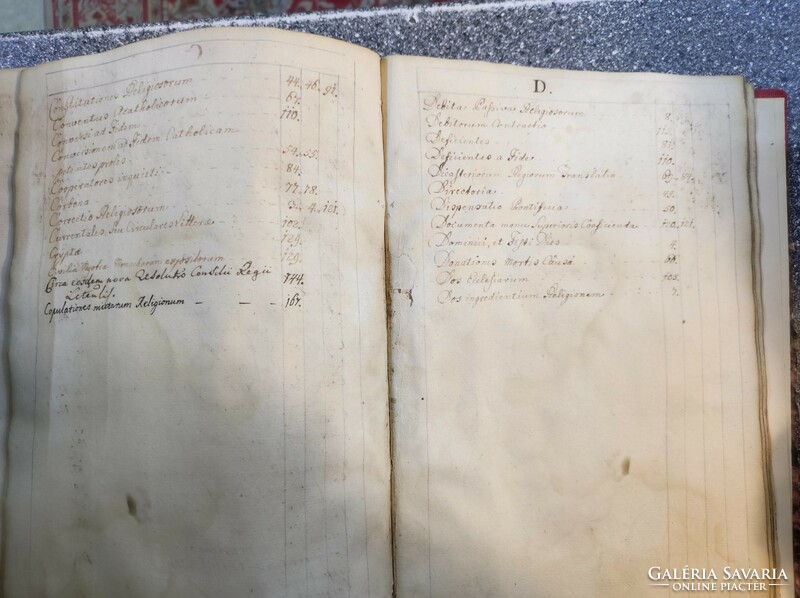 Constitutiones Religiosorum 44. 46. 91.
Conventus Acatholicorum 67.
Conversi ad Fidem 110.
Conversionem ad Fidem Catholicam
petentes proles 54. 55.
Cooperatores inquieti 84.
Cordona 77. 78.
Correctio Religiosorum 3. 4. 121.
Currentales, seu Circulares Litterae 102.
Cryptae 129.
129.
Circa eosdem nova Resolutio Consilii Regii 144.
Copulationes mixtarum Religionum — — — 167.
D.
Debita Passiva Religiosorum 8.
Debitorum Contractio
Deficientes
Deficientes a Fide 110.
Dicasteriorum Regiorum Translatio
Directoria 15.
Dispensatio Pontificia 50.
Documenta manu Superioris 121.
Dominici, et Festi Dies 4.
Donationes Mortis Causa 64.
Dos Ecclesiarum 105.
Dos ingredientium Religionem 7.
GALÉRIA SAVARIA
ONLINE PIACTÉR